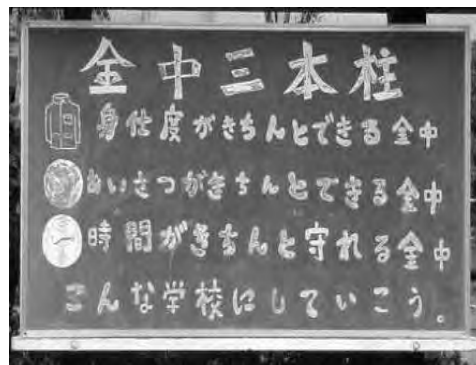 金中三本柱
身仕度がきちんとできる金中
あいさつがきちんとできる金中
時間がきちんと守れる金中
こんな学校にしていこう。